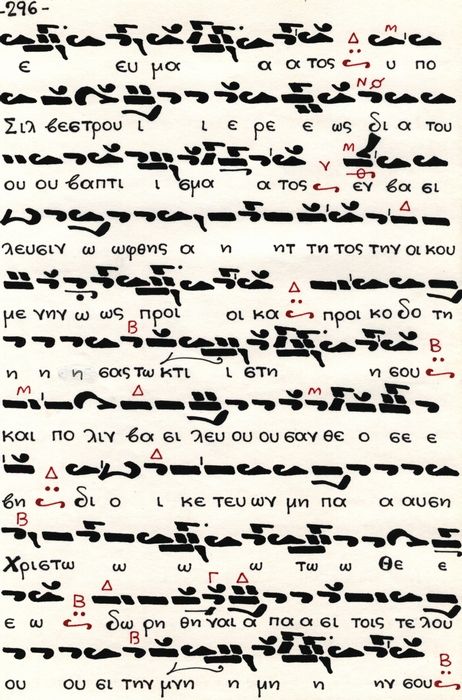 -296-
Δ Μ
ε ευ μα α α τος υ πο
Ν
Σιλ βεστρου ι ι ε ρε ε ως δι α του
Μ
ου ου βαπτι ι σμα α τος γ εν βα σι
Δ
λευσιν ω ωφθης α η ητ τη τος την οι κου
Δ
με νην ω ως προι οι κα προι κο δο τη
Β Β
η η η σας τω κτι ι στη η σου
Μ Δ Μ
και πο λιν βα σι λευ ου ου σαν θε ο σε ε
Δ Δ
βη δι ο ι κε τευ ων μη πα α αυση
Β
Χριστω ω ω ω τω ω Θε ε
Β Δ Γ Δ
ε ω δω ρη θη ναι α πα α σι τοις τε λου
Β Β
ου ου σι την μνη η μη η ην σου